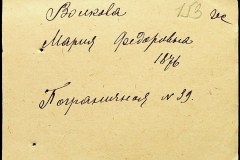 Волкова 153 ге
Мария Федоровна
1876
Пограничная № 39.